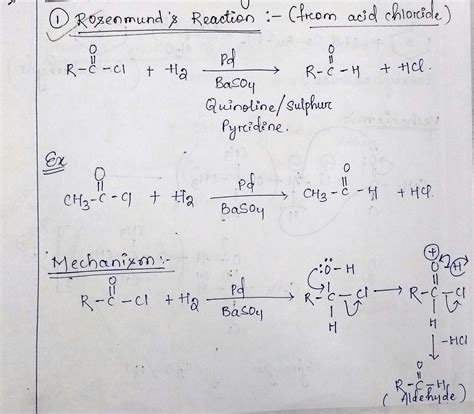 ① Rosenmund's Reaction :- (from acid chloride)
O
R-C-Cl + H2 Pd BaSO4 R-C-H + HCl.
Quinoline/Sulphur
Pyridine.
Ex
O
CH3-C-Cl + H2 Pd BaSO4 CH3-C-H + HCl
Mechanism:-
O
R-C-Cl + H2 Pd BaSO4 R-C-Cl R-C-Cl
:Ö-H
H
O H
H
-HCl
O
R-C-H
(Aldehyde)